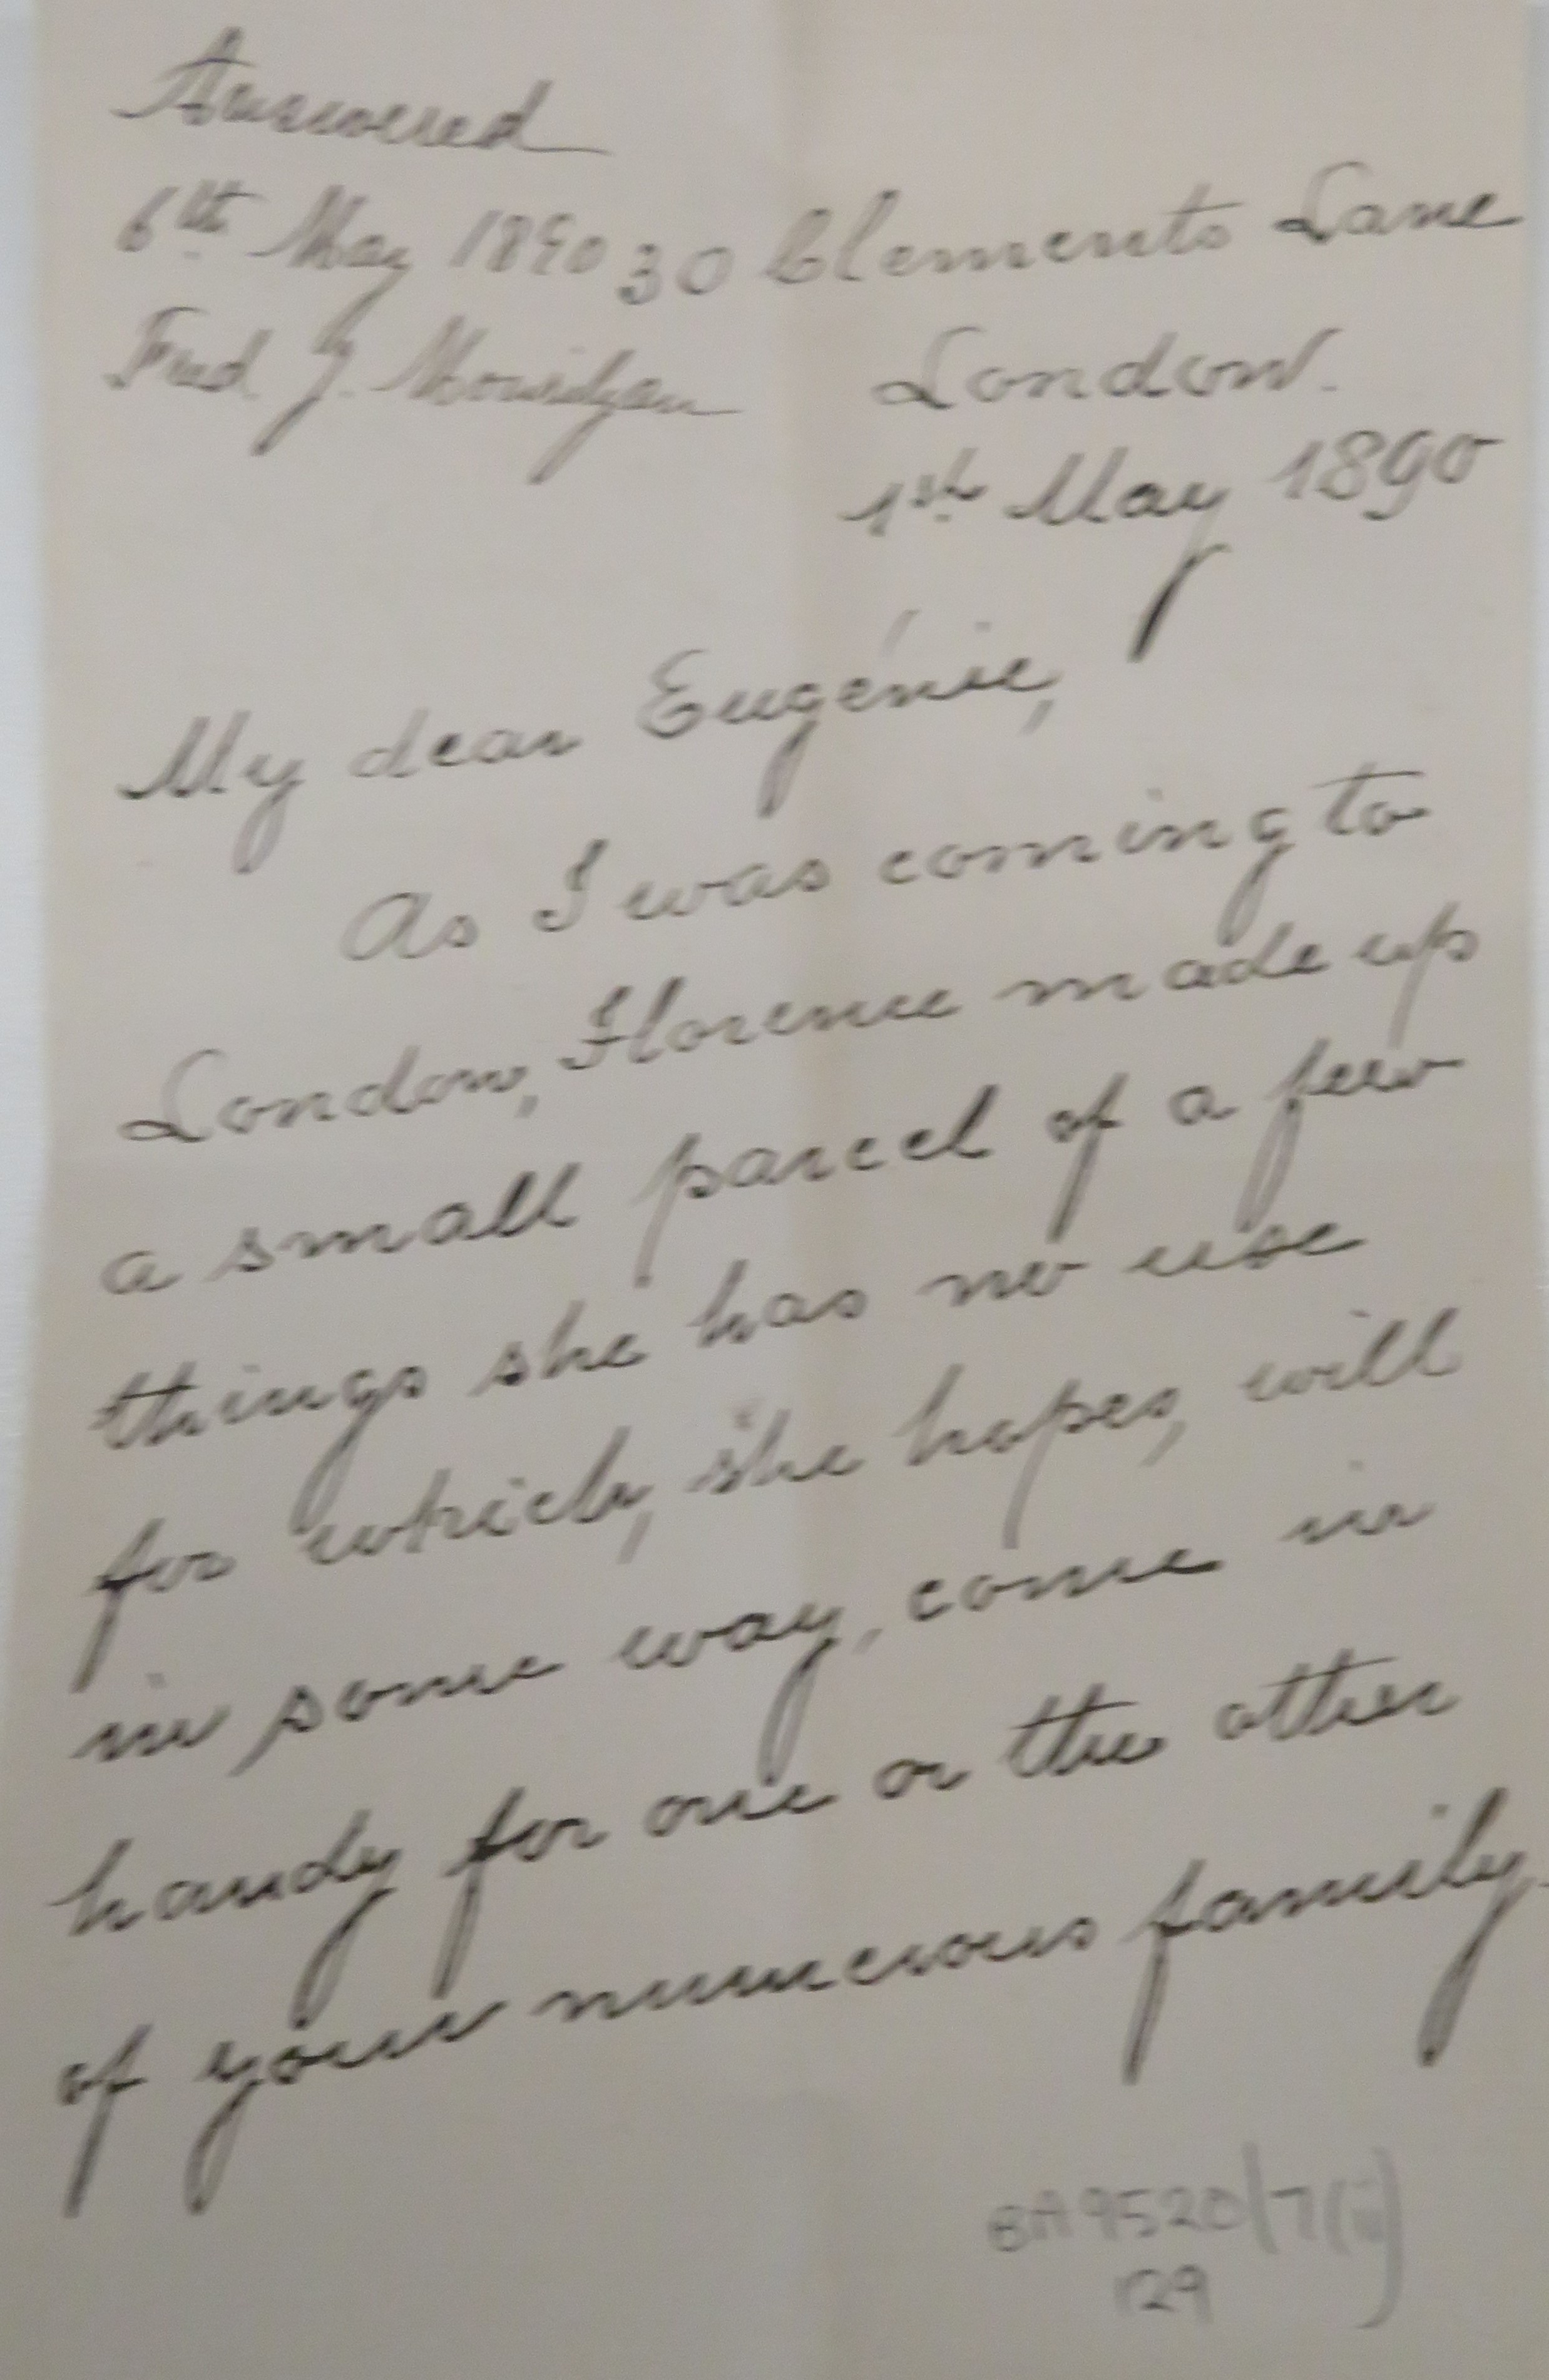 Answered
6th May 1890
Fred J.
30 Clements Lane
London.
1st May 1890
My dear Eugénie,
As I was coming to
London, Florence made up
a small parcel of a few
things she has no use
for which, she hopes, will
in some way, come in
handy for one or the other
of your numerous family.
BA9520/7(ii)
129